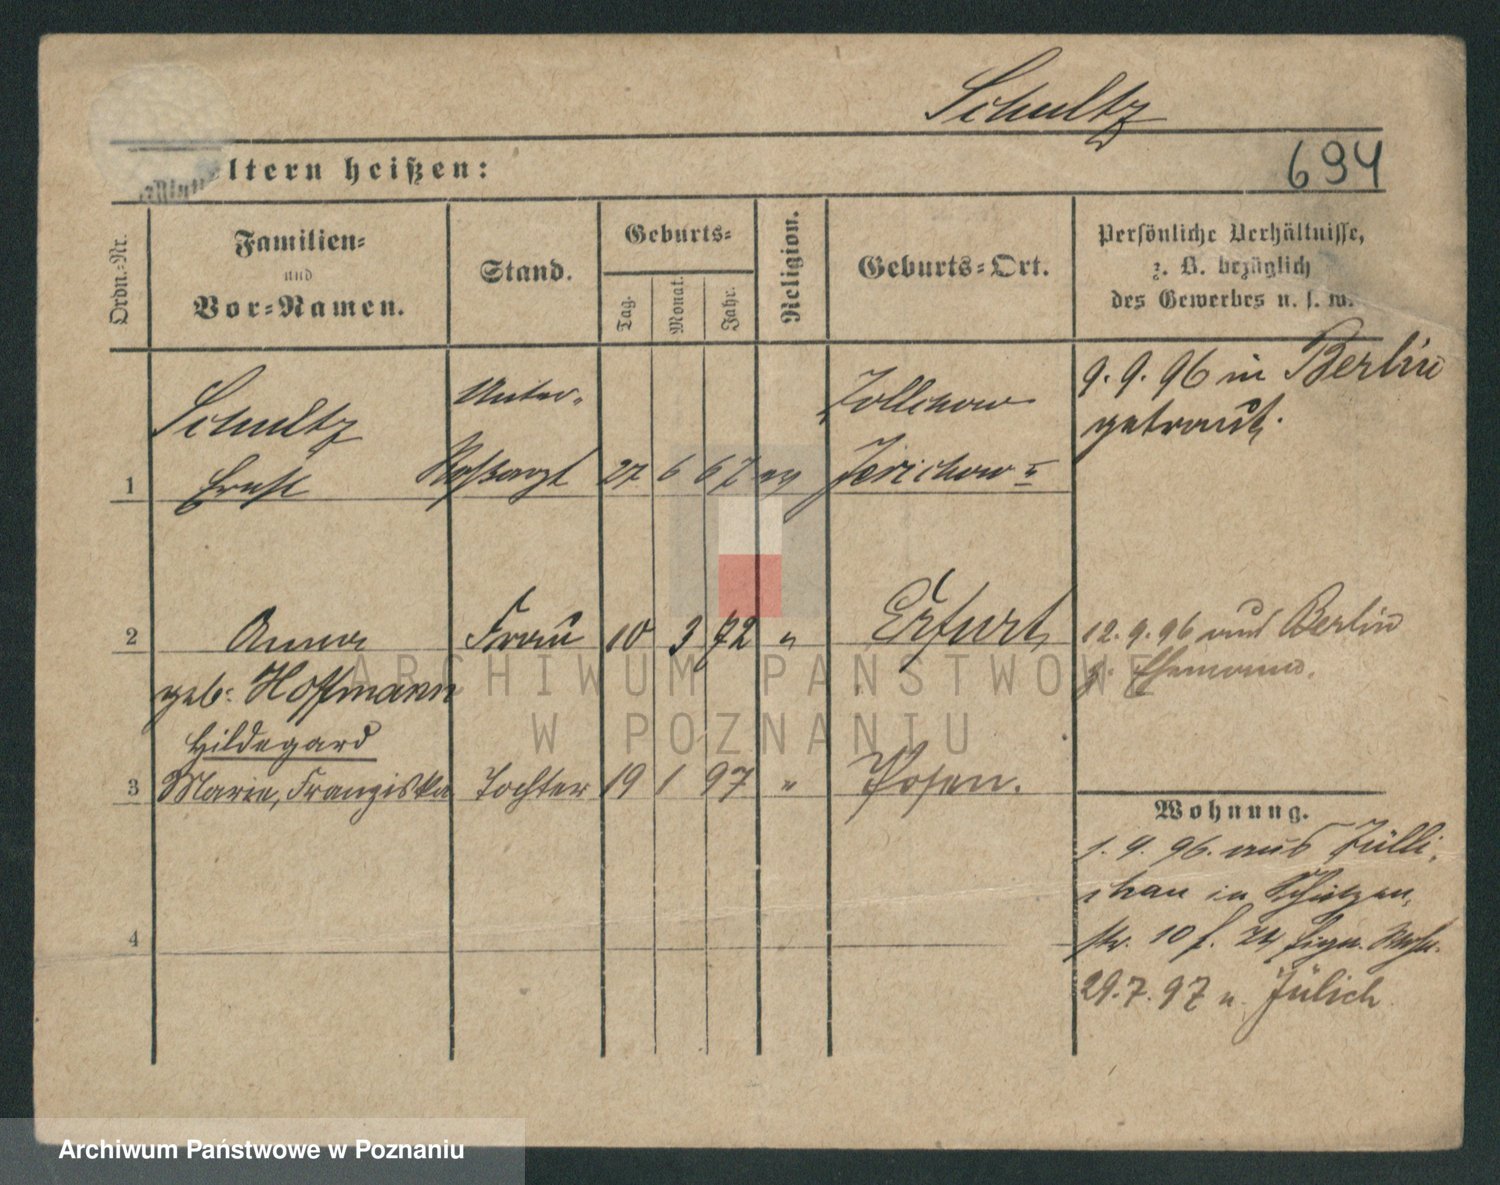 Schultz
694
eltern heißen:
Ordn.-Nr.
Familien-
und
Vor-Namen.
Stand.
Geburts-
Tag.
Monat.
Jahr.
Religion.
Geburts-Ort.
Persönliche Verhältnisse,
z. B. bezüglich
des Gewerbes u. s. w.
1
Schultz
Ernst
Unter-
Roßarzt
27
6
67
ev
Zollchow
Jerichow II
9. 9. 96 in Berlin
getraut.
2
Anna
geb. Hoffmann
Frau
10
3
72
"
Erfurt
12. 9. 96 aus Berlin
z. Ehemann.
3
Hildegard
Marie, Franziska
Tochter
19
1
97
"
Posen.
Wohnung.
1. 4. 96. aus Zülli-
chau in Schützen-
str. 10
29. 7. 97 n. Jülich
4
ARCHIWUM PAŃSTWOWE
W POZNANIU
Archiwum Państwowe w Poznaniu